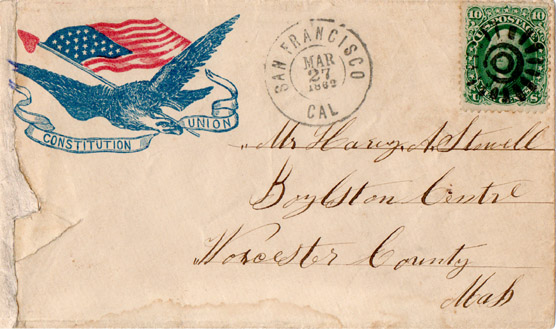 CONSTITUTION UNION
SAN FRANCISCO
MAR
27
1862
CAL
10 10
U.S. POSTAGE
Mr Harry A. Stowell
Boylston Centre
Worcester County
Mass